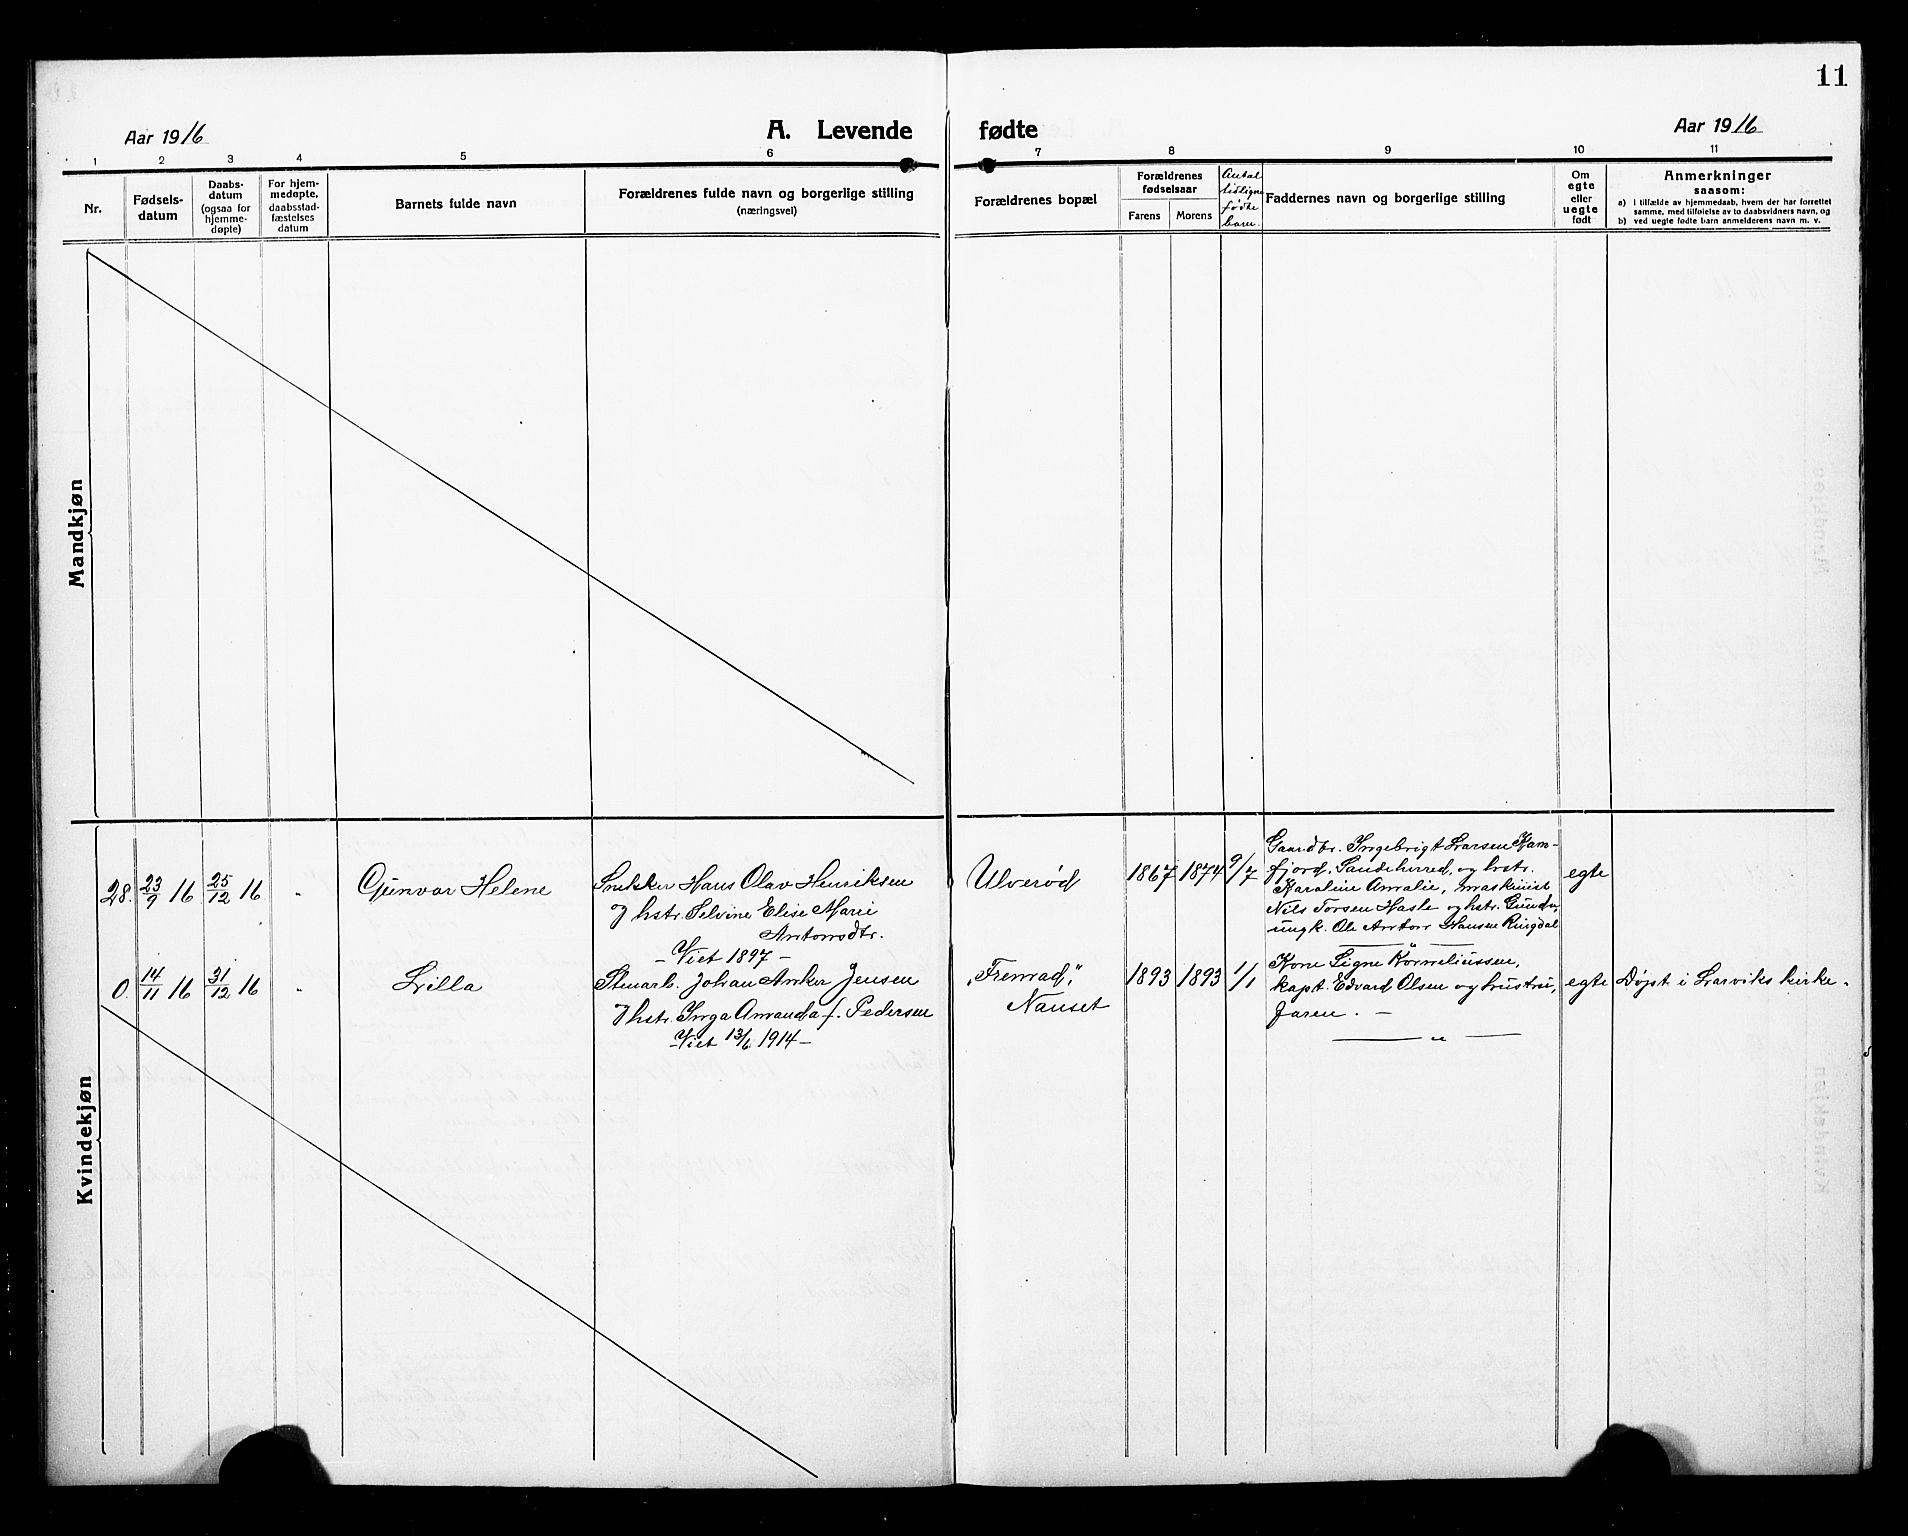 11
Aar 1916
A. Levende fødte
Aar 1916
1 2 3 4 5 6 7 8 9 10 11
Nr.
Fødsels-
datum
Daabs-
datum
(ogsaa for
hjemme-
døpte)
For hjem-
medøpte,
daabsstad-
fæstelses
datum
Barnets fulde navn
Forældrenes fulde navn og borgerlige stilling
(næringsvei)
Forældrenes bopæl
Forældrenes
fødselsaar
Farens Morens
Antal
fødte
barn.
Faddernes navn og borgerlige stilling
Om
egte
eller
uegte
født
Anmerkninger
saasom:
a) i tilfælde av hjemmedaab, hvem der har forrettet
samme, med tilføielse av to daabsvidners navn, og
b) ved uegte fødte barn anmelderens navn m. v.
Mandkjøn
Kvindekjøn
28. 23/9 16 25/12 16 "
Gunvor Helene
Snekker Hans Olav Henriksen
og hstr. Selvine Elise Marie
Antonsdtr.
- Viet 1897 -
Ulverød
1867 1874 9/7
Gaardbr. Ingebrigt Larsen Kam-
fjord, Sandeherred, og hstr.
Karoline Amalie, maskinist
Nils Torsen Hasle og hstr. Gunda,
ungk. Ole Anton Hansen Ringdal
— " —
egte
0. 14/11 16 31/12 16 "
Lilla
Stenarb. Johan Anker Jensen
og hstr. Inga Amanda f. Pedersen
- Viet 13/6 1914 -
"Fremad",
Nanset
1893 1893 1/1
Kone Signe Korneliussen,
kapt. Edvard Olsen og hustru,
Faren. -
— " —
egte
Døpt i Larviks kirke.